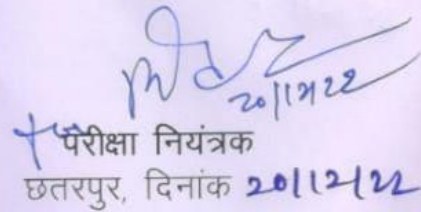 20/12/22
परीक्षा नियंत्रक
छतरपुर, दिनांक 20/12/22